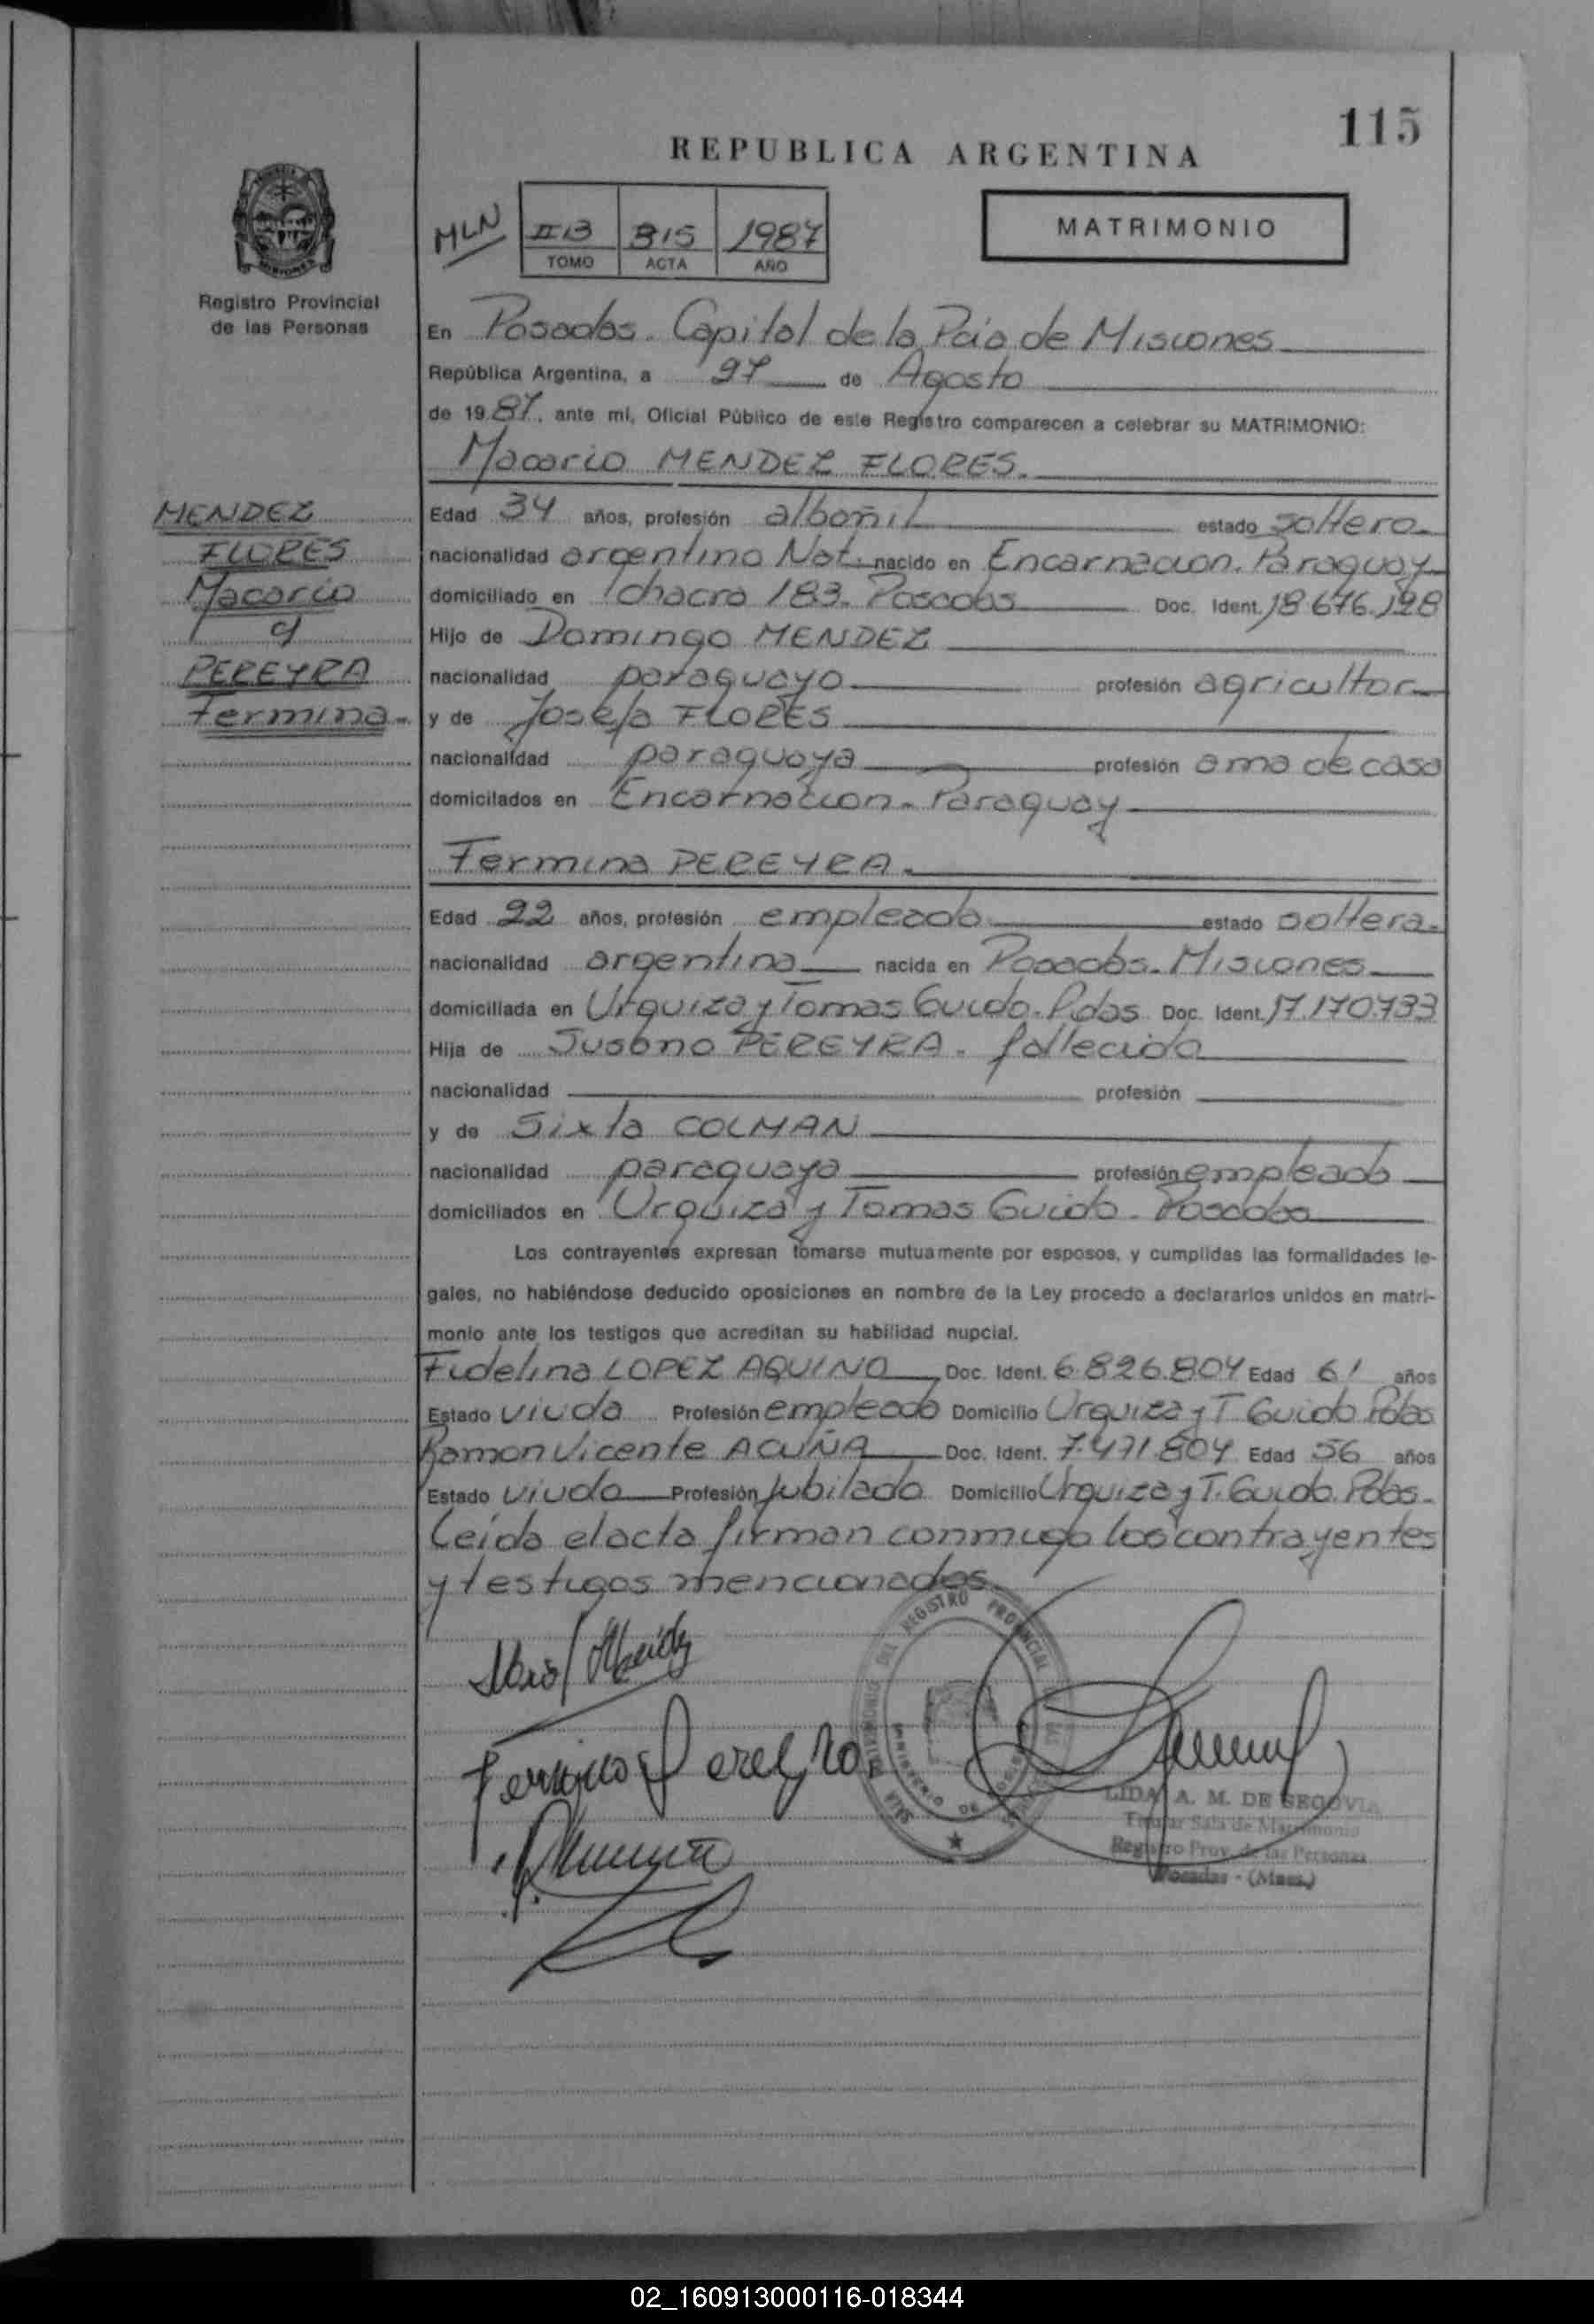 115
REPUBLICA ARGENTINA
MLN
II B 315 1987
TOMO ACTA AÑO
MATRIMONIO
Registro Provincial
de las Personas
En Posadas. Capital de la Pcia de Misiones
República Argentina, a 27 de Agosto
de 1987, ante mi, Oficial Público de este Registro comparecen a celebrar su MATRIMONIO:
Macario MENDEZ FLORES.
MENDEZ
FLORES
Macario
y
PEREYRA
Fermina
Edad 34 años, profesión albañil estado soltero
nacionalidad argentino Nat. nacido en Encarnacion. Paraguay
domiciliado en chacra 183. Posadas Doc. Ident. 18.676.128
Hijo de Domingo MENDEZ
nacionalidad paraguayo profesión agricultor
y de Josefa FLORES
nacionalidad paraguaya profesión ama de casa
domicilados en Encarnacion. Paraguay
Fermina PEREYRA.
Edad 22 años, profesión empleada estado soltera.
nacionalidad argentina nacida en Posadas. Misiones
domiciliada en Urquiza y Tomas Guido. Pdas Doc. Ident. 17.170.733
Hija de Susano PEREYRA. fallecido
nacionalidad profesión
y de Sixta COLMAN
nacionalidad paraguaya profesión empleada
domiciliados en Urquiza y Tomas Guido. Posadas
Los contrayentes expresan tomarse mutuamente por esposos, y cumplidas las formalidades le-
gales, no habiéndose deducido oposiciones en nombre de la Ley procedo a declararlos unidos en matri-
monio ante los testigos que acreditan su habilidad nupcial.
Fidelina LOPEZ AQUINO Doc. Ident. 6.826.804 Edad 61 años
Estado viuda Profesión empleada Domicilio Urquiza y T Guido Pdas
Ramon Vicente ACUÑA Doc. Ident. 7.471.804 Edad 56 años
Estado viudo Profesión Jubilado Domicilio Urquiza y T. Guido. Pdas.
Leida el acta firman conmigo los contrayentes
y testigos mencionados.
Fermina Pereyra
SALA MATRIMONIO DEL REGISTRO PROVINCIAL
MINISTERIO DE
LIDA A. M. DE SEGOVIA
Titular Sala de Matrimonio
Registro Prov. de las Personas
Posadas - (Mnes.)
02_160913000116-018344